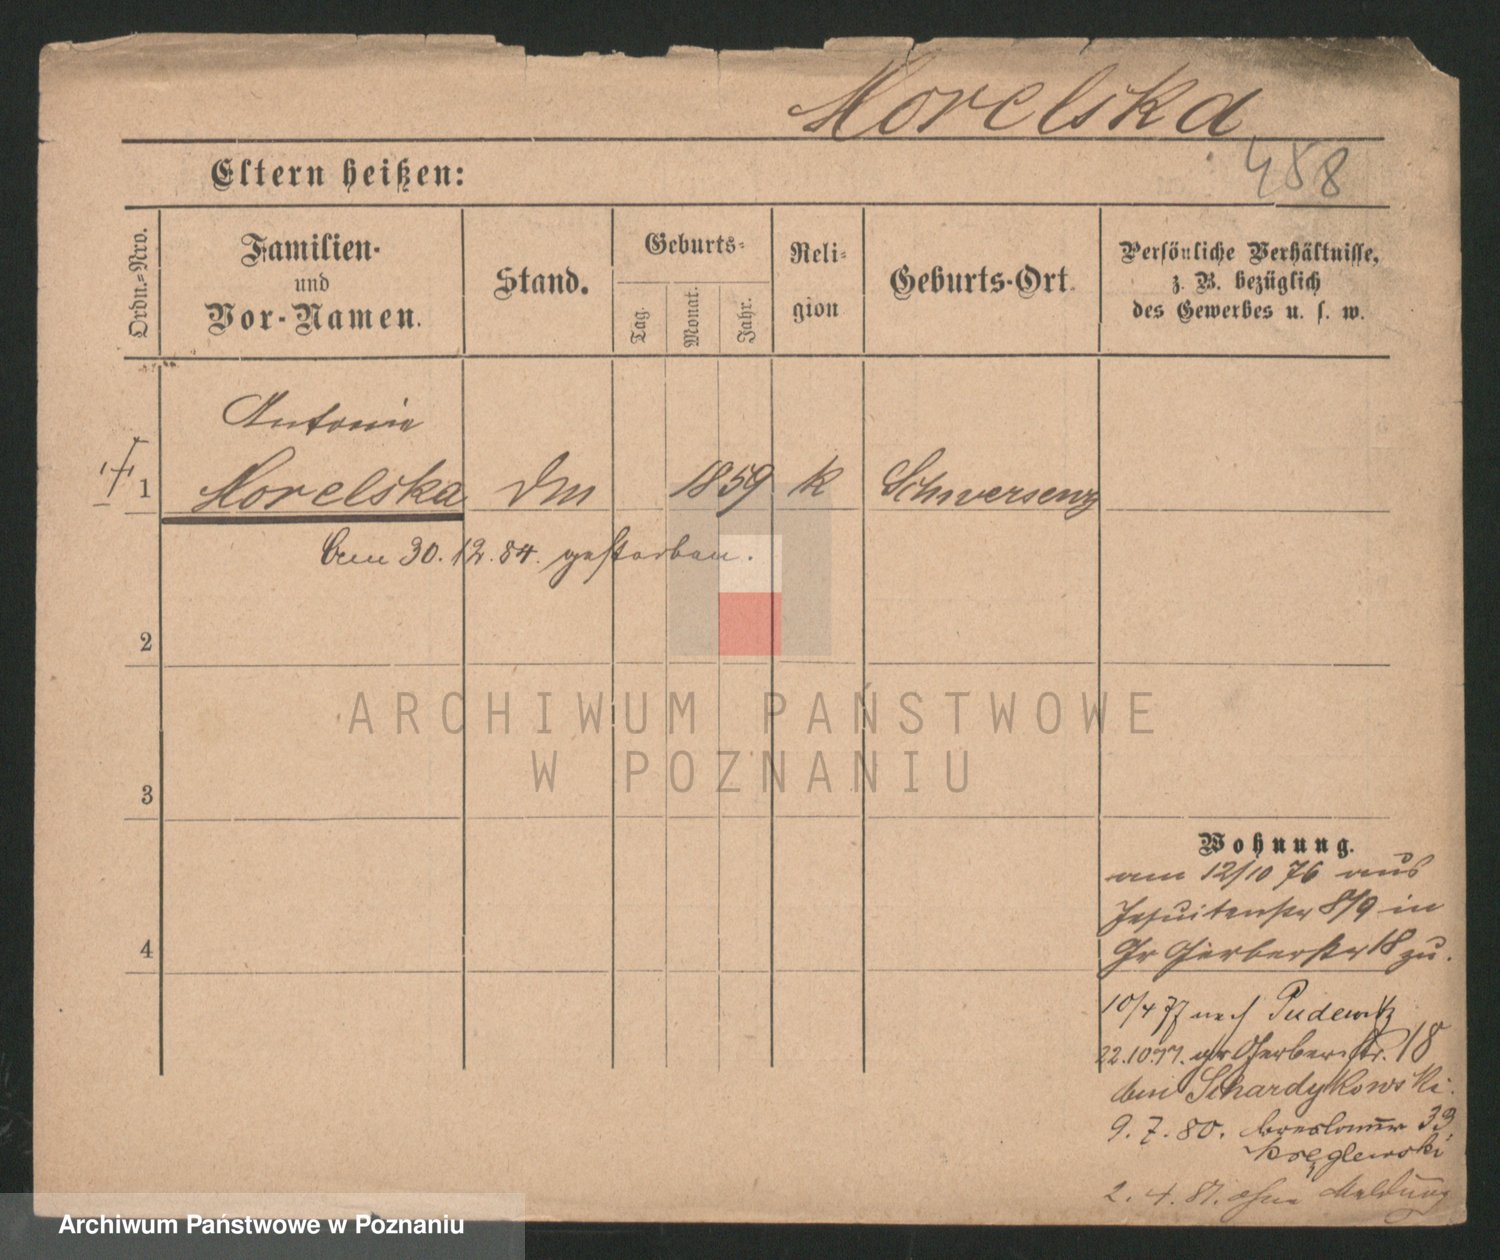 Morelska
458
Eltern heißen:
Ordn.-Nro.
Familien-
und
Vor-Namen.
Stand.
Geburts-
Tag.
Monat.
Jahr.
Reli-
gion
Geburts-Ort.
Persönliche Verhältnisse,
z. B. bezüglich
des Gewerbes u. s. w.
Antonie
1 Morelska Dm 1859 k Schwersenz
am 30.12.84. gestorben.
2
ARCHIWUM PAŃSTWOWE
W POZNANIU
3
Wohnung.
am 12/10 76 aus
Jesuitenstr 8/9 in
4
Gr Gerberstr 18 zu.
10/4 77 nach Pudewitz
22.10.77. gr Gerberstr. 18
bei
9. 7. 80. Breslauer 33
2. 4. 81. ohne Meldung
Archiwum Państwowe w Poznaniu